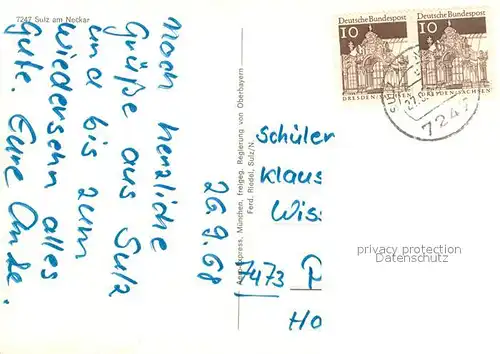 7247 Sulz am Neckar
26.9.68
Noch herzliche
Grüße aus Sulz
und bis zum
Wiedersehn alles
Gute. Eure Ande.
Aero-Express, München, freigeg. Regierung von Oberbayern
Ferd. Riedel, Sulz/N.
Deutsche Bundespost
10
DRESDEN/SACHSEN
Deutsche Bundespost
10
DRESDEN/SACHSEN
7247
Schüler
Klaus
Wis
7473
Ho
privacy protection
Datenschutz